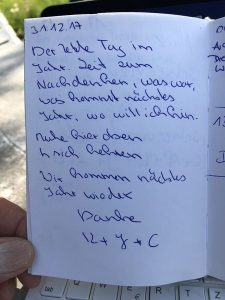 31.12.17
Der letzte Tag im
Jahr. Zeit zum
Nachdenken, was war,
was kommt nächstes
Jahr, wo will ich hin.
hier
sich kehren
Wir kommen nächstes
Jahr wieder
Danke
K + J + C